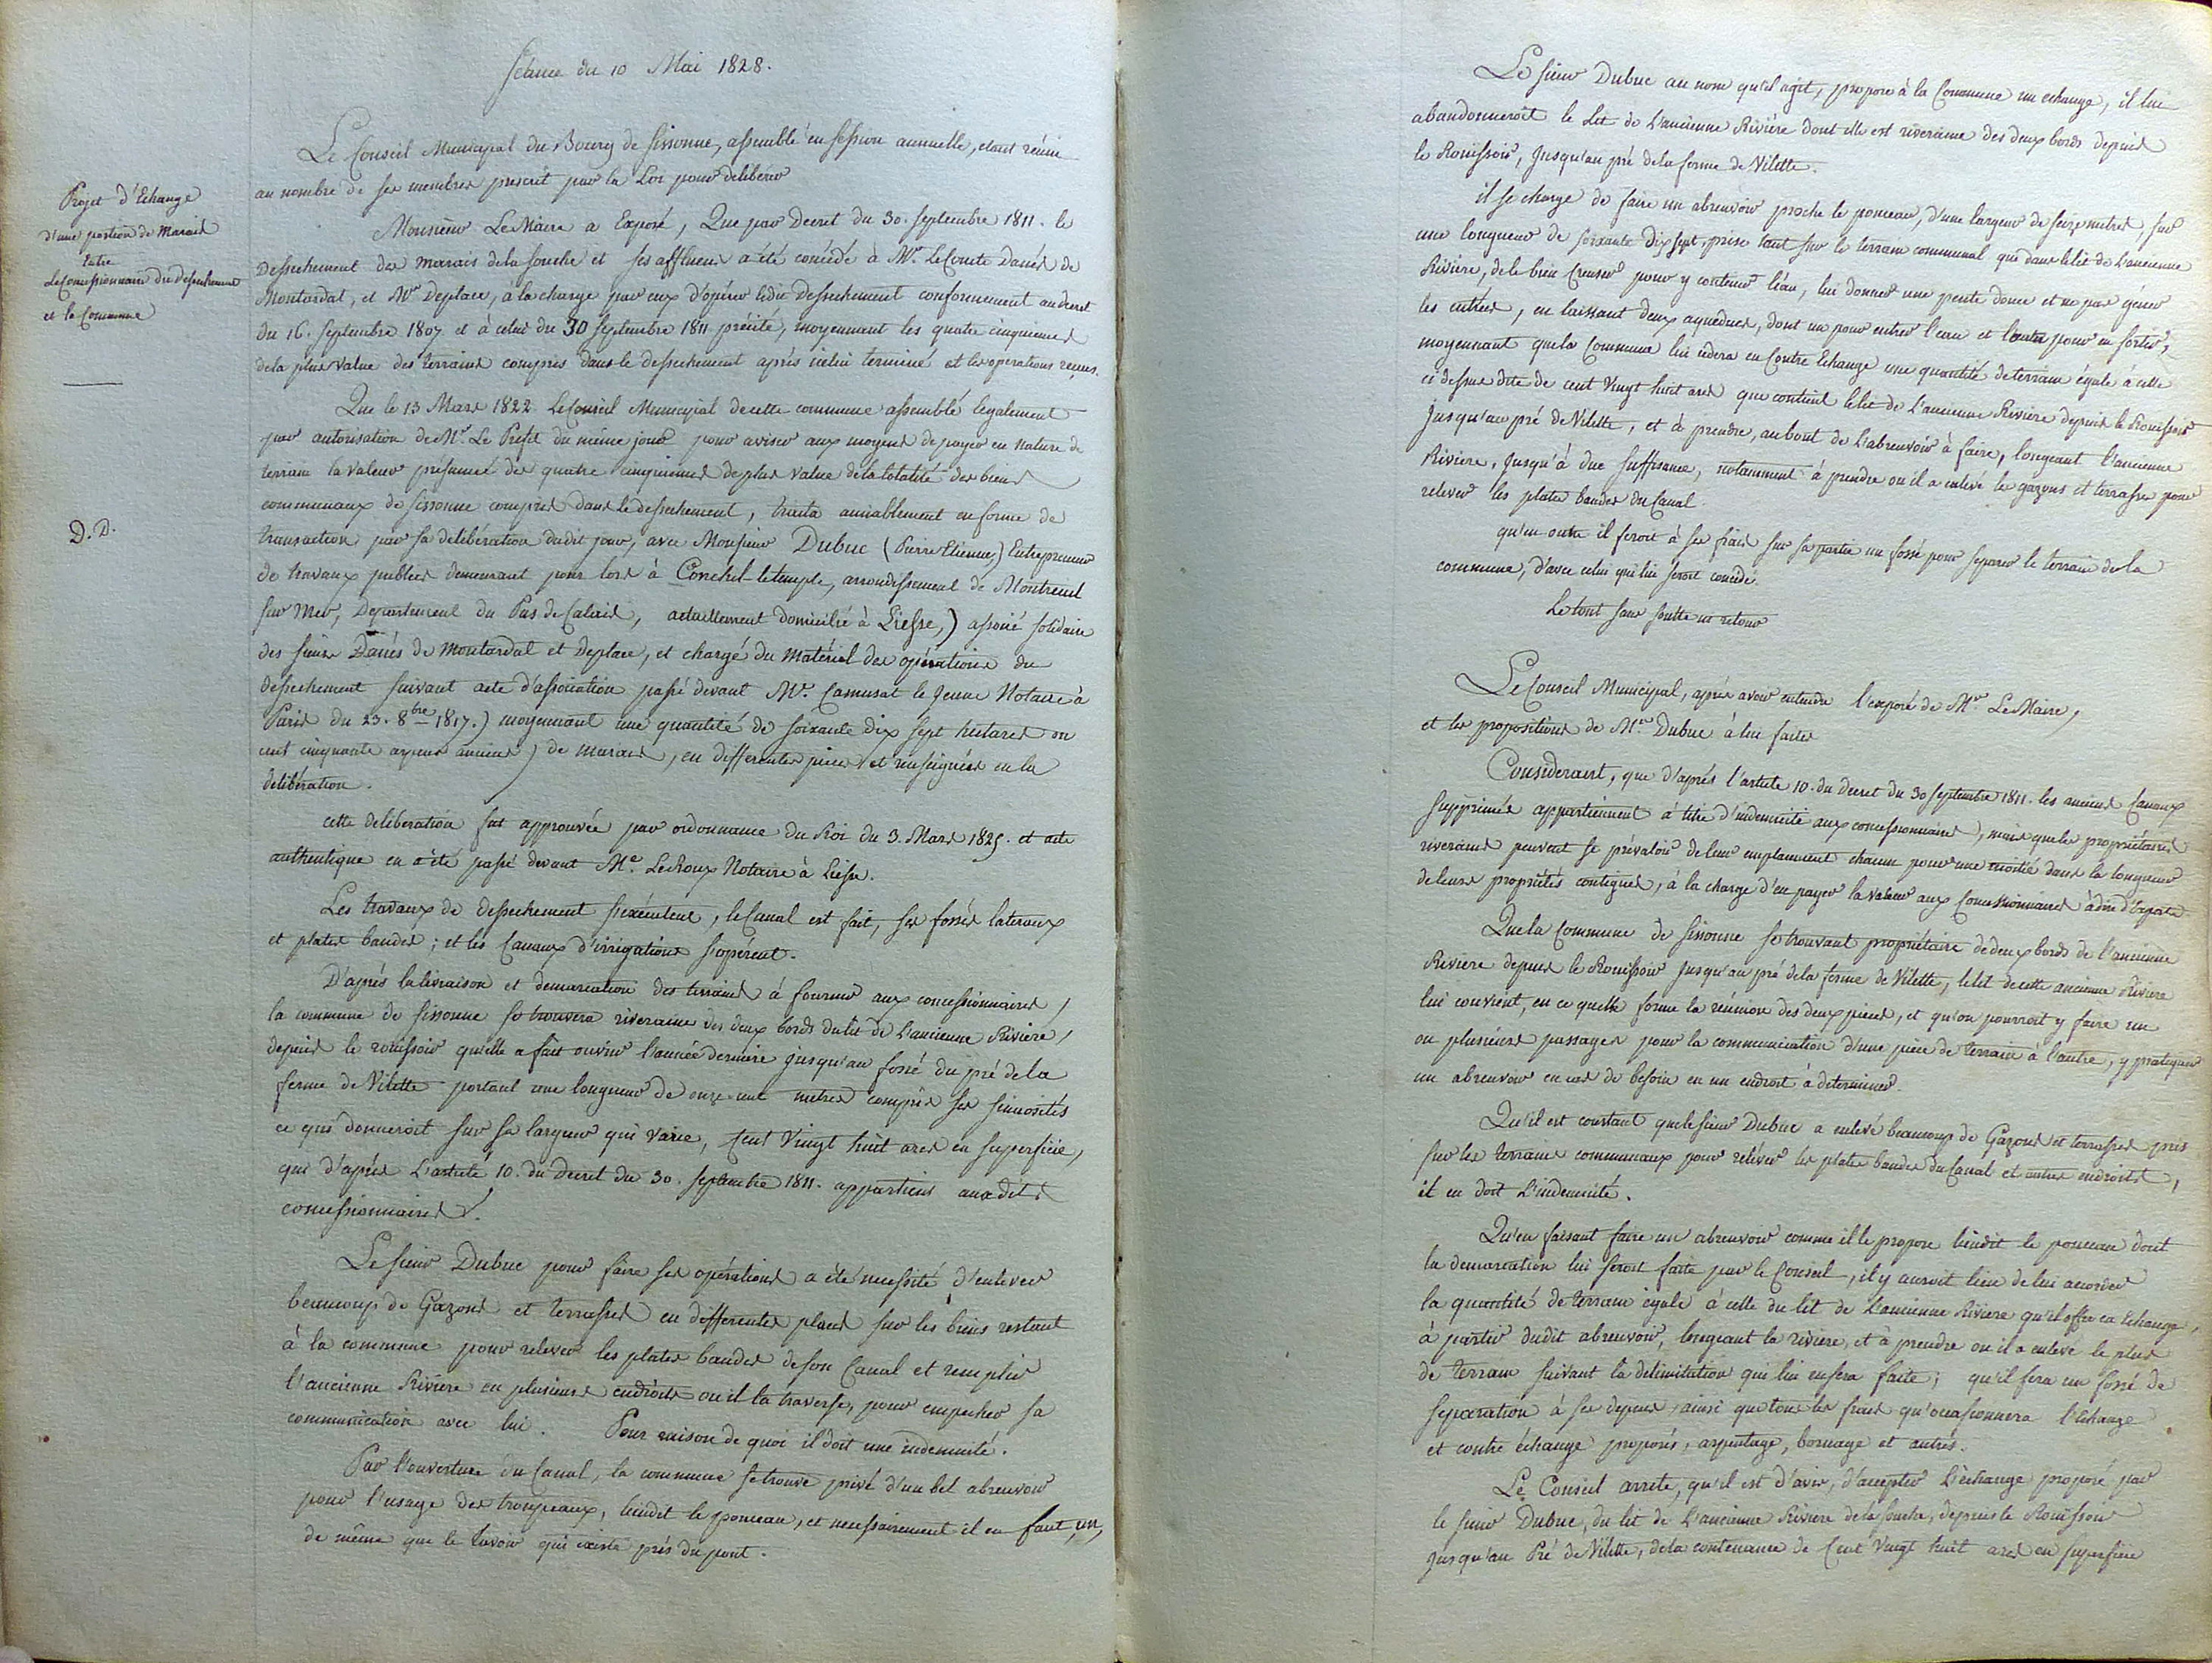 Séance du 10 Mai 1828.
Le Conseil Municipal du Bourg de Sissonne, assemblé en session annuelle, etant réuni
au nombre de ses membres prescrit par la Loi pour délibérer
Projet d'Echange
d'une portion de Marais
Entre
Le Concessionnaire du Dessechement
et la Commune
Monsieur Le Maire a Exposé, Que par Decret du 30. Septembre 1811. le
Dessechement des marais de la Souche et ses affluens a été concédé à Mr. Le Comte Danés de
Montardat, et Mr Deplace, à la charge par eux d'opérer ledit Dessechement conformement au decret
du 16. Septembre 1807 et à celui du 30 Septembre 1811 précité, moyennant les quatre cinquiemes
de la plus value des terrains compris dans le dessechement après icelui terminé et les operations reçues.
Que le 13 Mars 1822 Le Conseil Municipal de cette commune assemblé legalement
par autorisation de Mr. Le Préfet du même jour pour aviser aux moyens de payer en nature de
terrain la valeur présumée des quatre cinquiemes de plus value de la totalité des biens
communaux de Sissonne compris dans le dessechement, traita amiablement en forme de
D. D.
transaction par sa délibération dudit jour, avec Monsieur Dubuc (Pierre Etienne,) Entrepreneur
de travaux publics demeurant pour lors à Conchil-letemple, arrondissement de Montreuil
sur Mer, Departement du Pas de Calais, actuellement domicilié à Liesse,) associé solidaire
des sieurs Danés de Montardat et Deplace, et chargé du Matériel des opérations du
dessechement suivant acte d'association passé devant Me. Camusat le jeune Notaire à
Paris du 23. 8bre 1817.) moyennant une quantité de soixante dix sept hectares ou
cent cinquante arpens anciens) de marais, en differentes pieces et renseignées en la
délibération.
cette délibération fut approuvée par ordonnance du Roi du 3. Mars 1825. et acte
authentique en a été passé devant Me. Le Roux Notaire à Liesse.
Les travaux de dessechement s'exécutent, le Canal est fait, ses fossés lateraux
et plates bandes; et les Canaux d'irrigations s'opérent.
D'après la livraison et demarcation des terrains à fournir aux concessionnaires,
la commune de Sissonne se trouvera riveraine des deux bords du lit de L'ancienne Riviere,
depuis le rouissoir qu'elle a fait ouvrir l'année derniere jusqu'au fossé du pré de la
ferme de Vilette portant une longueur de onze cent metres compris ses sinuosités
ce qui donneroit sur sa largeur qui varie, Cent Vingt huit ares en superficie,
qui d'après L'article 10. du Decret du 30. Septembre 1811. appartient auxdits
concessionnaires.
Le sieur Dubuc pour faire ses opérations a été necessité d'enlever
beaucoup de Gazons et terrasses en differentes places sur les biens restant
à la commune pour relever les plates bandes de son Canal et remplir
l'ancienne Riviere en plusieurs endroits où il la traverse, pour empecher sa
communication avec lui. Pour raison de quoi il doit une indemnité.
Par l'ouverture du Canal, la commune se trouve privé d'un bel abreuvoir
pour l'usage des troupeaux, lieudit le ponceau, et necessairement il en faut un,
de même que le lavoir qui existe près du pont.
Le sieur Dubuc au nom qu'il agit, propose à la Commune un echange, il lui
abandonneroit le Lit de L'ancienne Riviére dont elle est riveraine des deux bords depuis
le Rouissoir, Jusqu'au pré de la ferme de Vilette.
il se charge de faire un abreuvoir proche le ponceau, d'une largeur de seize metres sur
une longueur de soixante dix sept, prise tant sur le terrain communal que dans le lit de L'ancienne
Riviere, de le bien Creuser pour y contenir l'eau, lui donner une pente douce et ne pas géner
les entrées, en laissant deux aqueducs, dont un pour entrer l'eau et l'autre pour en sortir,
moyennant que la Commune lui cédera en Contre Echange une quantité de terrain égale à celle
ci dessus dite de cent Vingt huit ares que contient le lit de L'ancienne Riviere depuis le Rouissoir
Jusqu'au pré de Vilette, et à prendre, au bout de L'abreuvoir à faire, longeant l'ancienne
Riviere, Jusqu'à due suffisance, notamment à prendre où il a enlevé les gazons et terrasses pour
relever les plates bandes du Canal.
qu'en outre il feroit à ses frais sur sa partie un fossé pour separer le terrain de la
commune, d'avec celui qui lui seroit concédé
Le tout sans soulte ni retour
Le Conseil Municipal, après avoir entendu l'exposé de Mr Le Maire,
et les propositions de Mr. Dubuc à lui faites
Considerant, que d'après l'article 10. du Decret du 30 Septembre 1811. les anciens Canaux
supprimés appartiennent à titre d'indemnité aux concessionnaires, mais que les propriétaires
riverains peuvent se prévaloir de leur emplacement chacun pour une moitié dans la longueur
de leurs propriétés contigues, à la charge d'en payer la valeur aux Concessionnaires à dire d'Experts
Que la Commune de Sissonne se trouvant propriétaire de deux bords de l'ancienne
Riviere depuis le Rouissoir Jusqu'au pré de la ferme de Vilette, le lit de cette ancienne Riviere
lui convient, en ce quelle forme la réunion des deux pieces, et qu'on pourroit y faire un
ou plusieurs passages pour la communication d'une piece de terrain à l'autre, y pratiquer
un abreuvoir en cas de besoin en un endroit à determiner.
Qu'il est constant que le sieur Dubuc a enlevé beaucoup de Gazons et terrasses pris
sur les terrains communaux pour relever les plates bandes du Canal et autres endroits,
il en doit L'indemnité.
Qu'en faisant faire un abreuvoir comme il le propose lieudit le ponceau dont
la demarcation lui seroit faite par le Conseil, il y auroit lieu de lui accorder
la quantité de terrain égale à celle du lit de L'ancienne Riviere qu'il offre en Echange,
à partir dudit abreuvoir, longeant la riviere, et à prendre où il a enlevé le plus
de terrain suivant la délimitation qui lui en sera faite; qu'il fera un fossé de
séparation à ses depens, ainsi que tous les frais qu'occasionnera l'Echange
et contre échange proposés, arpentage, bornage et autres.
Le Conseil arrete, qu'il est d'avis, d'accepter L'échange proposé par
le sieur Dubuc, du lit de L'ancienne Riviere de la Souche, depuis le Rouissoir
Jusqu'au Pré de Vilette, de la contenance de Cent Vingt huit ares en superficie